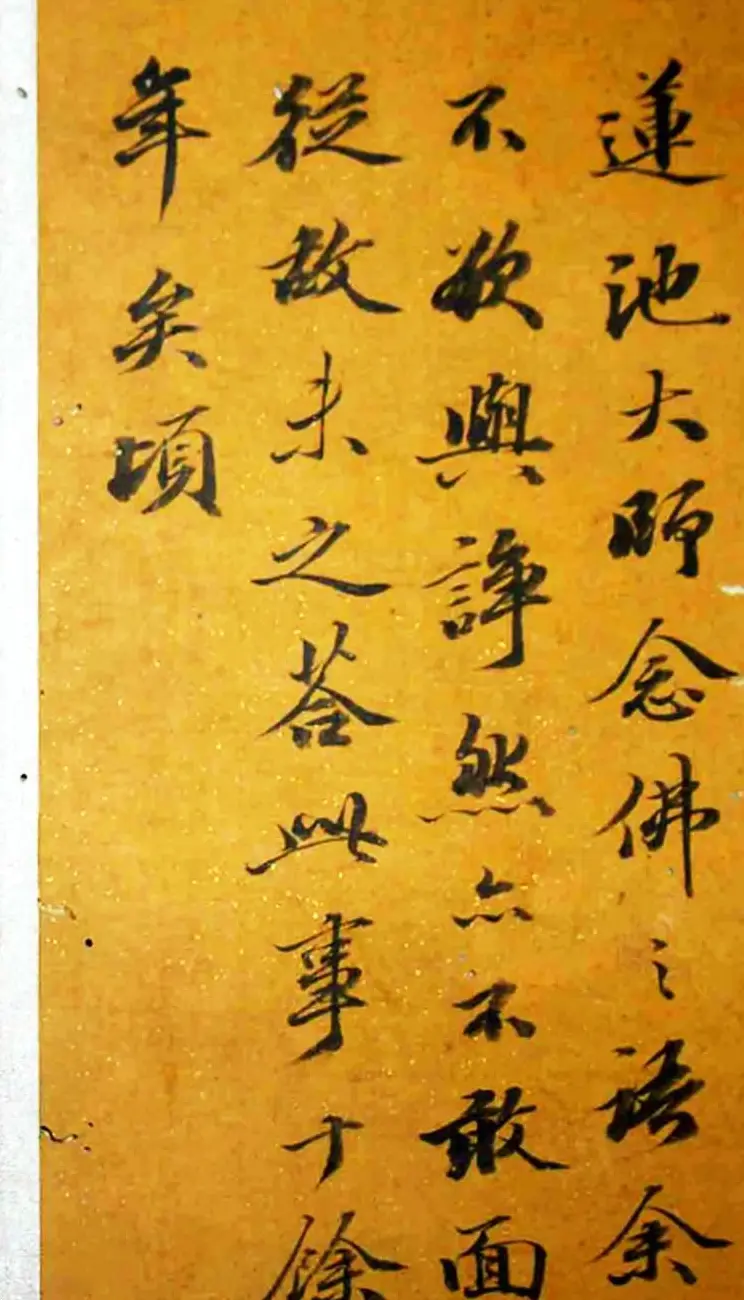 蓮池大師念佛之語余
不欲與諍然亦不敢面
從故未之荅此事十餘
年矣頃